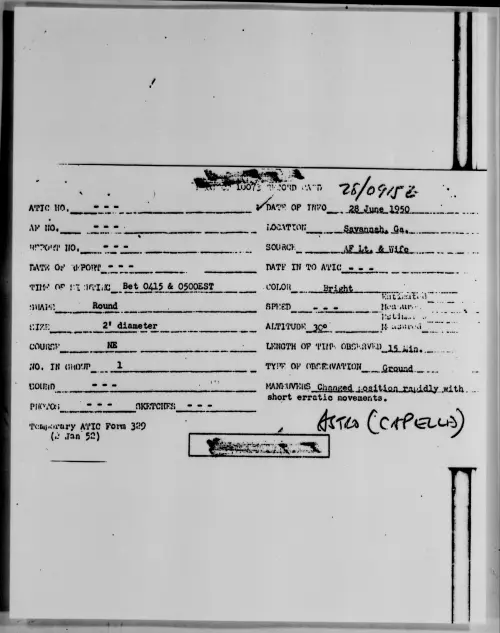 10073 RECORD CARD 28/0915Z
ATIC NO. - - - ✓DATE OF INFO 28 June 1950
AF NO. - - - LOCATION Savannah, Ga.
REPORT NO. - - - SOURCE AF Lt. & Wife
DATE OF REPORT - - - DATE IN TO ATIC - - -
TIME OF SIGHTING Bet 0415 & 0500EST COLOR Bright
SHAPE Round SPEED - - - Estimated Measured
SIZE 2' diameter ALTITUDE 30° Estimated Measured
COURSE NE LENGTH OF TIME OBSERVED 15 Min.
NO. IN GROUP 1 TYPE OF OBSERVATION Ground
SOUND - - - MANEUVERS Changed position rapidly with
short erratic movements.
PHOTOS - - - SKETCHES - - -
Temporary ATIC Form 329
(2 Jan 52)
ASTRO (CAPELLA)